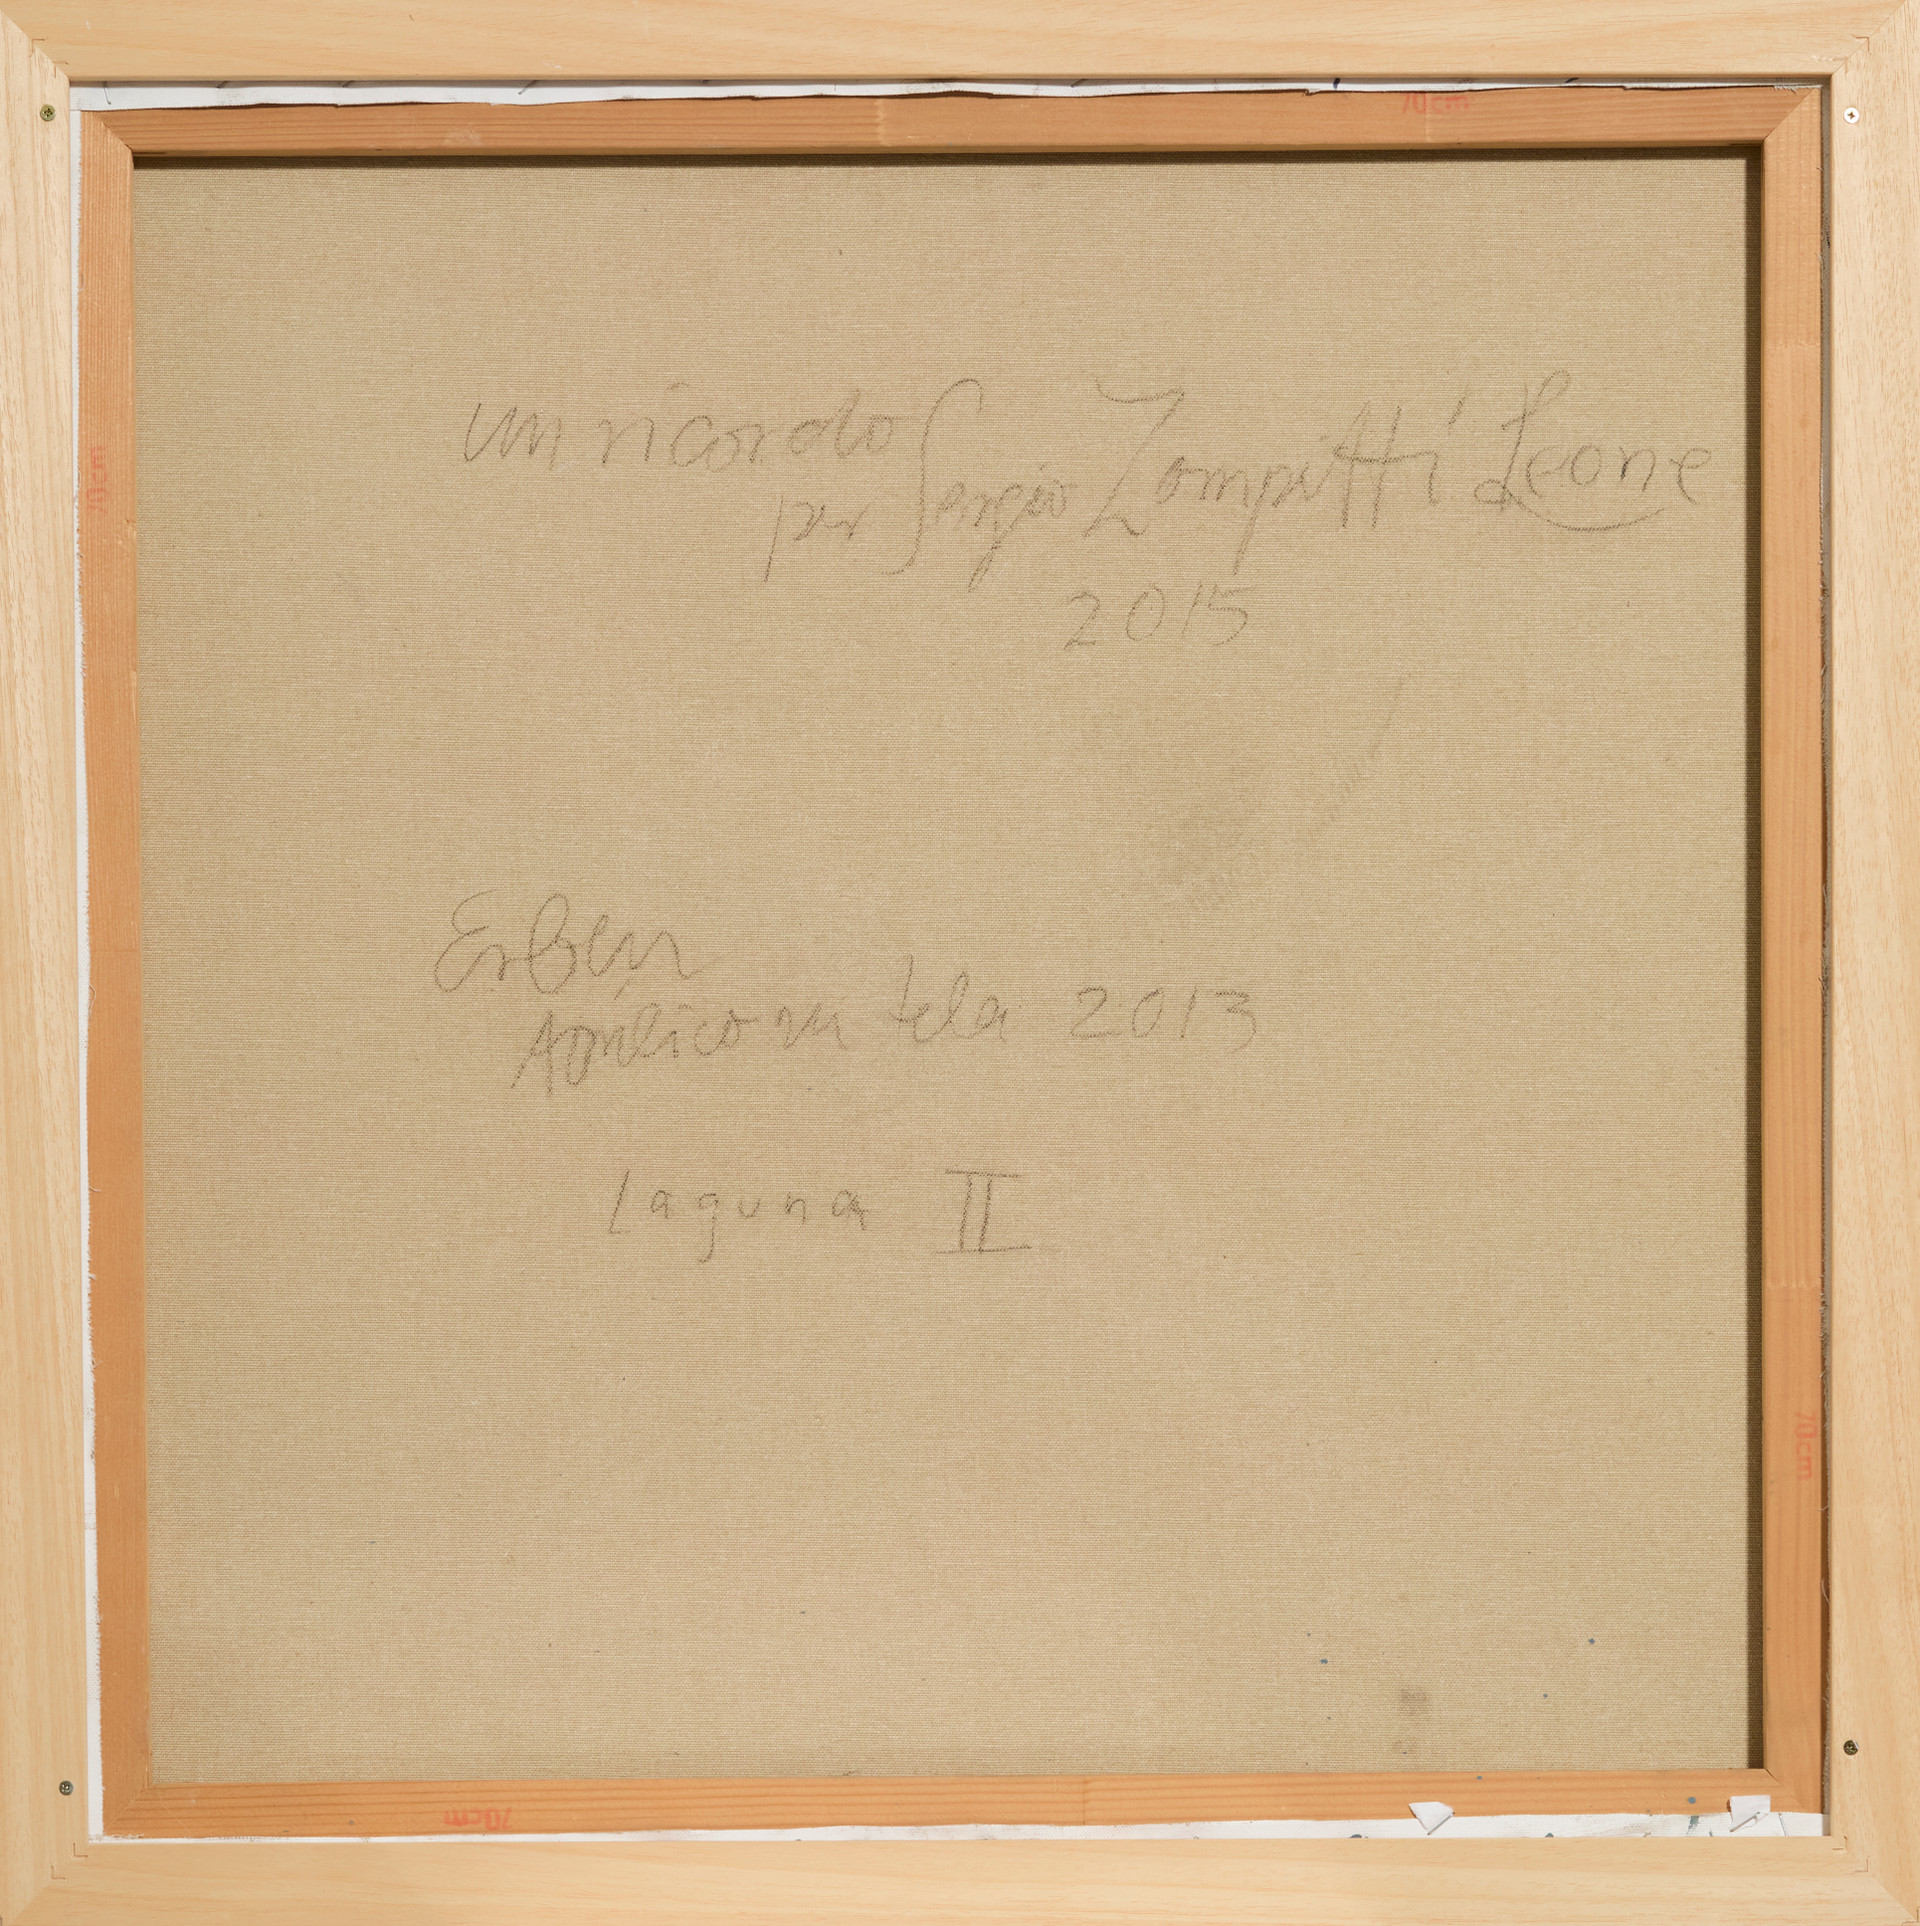 70cm
un ricordo
per Sergio Zamputti Leone
2015
70cm
Erben
Acrilico su tela 2013
Laguna II
70cm
70cm